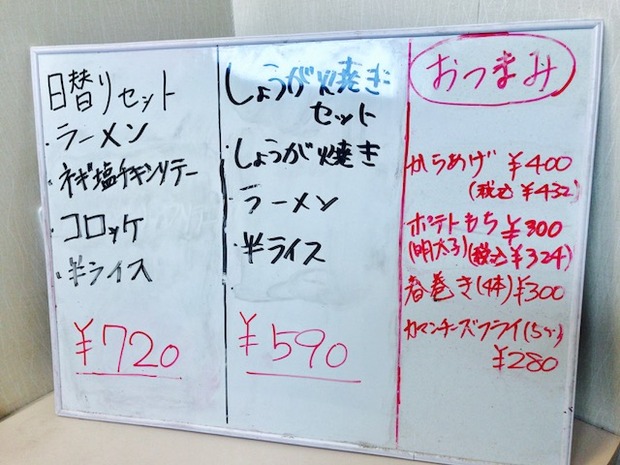 日替りセット
・ラーメン
・ネギ塩チキンソテー
・コロッケ
・半ライス
¥720
しょうが焼き
セット
・しょうが焼き
・ラーメン
・半ライス
¥590
おつまみ
からあげ ¥400
(税込 ¥432)
ポテトもち ¥300
(明太子)(税込 ¥324)
春巻き(4本) ¥300
カマンチーズフライ(5つ)
¥280